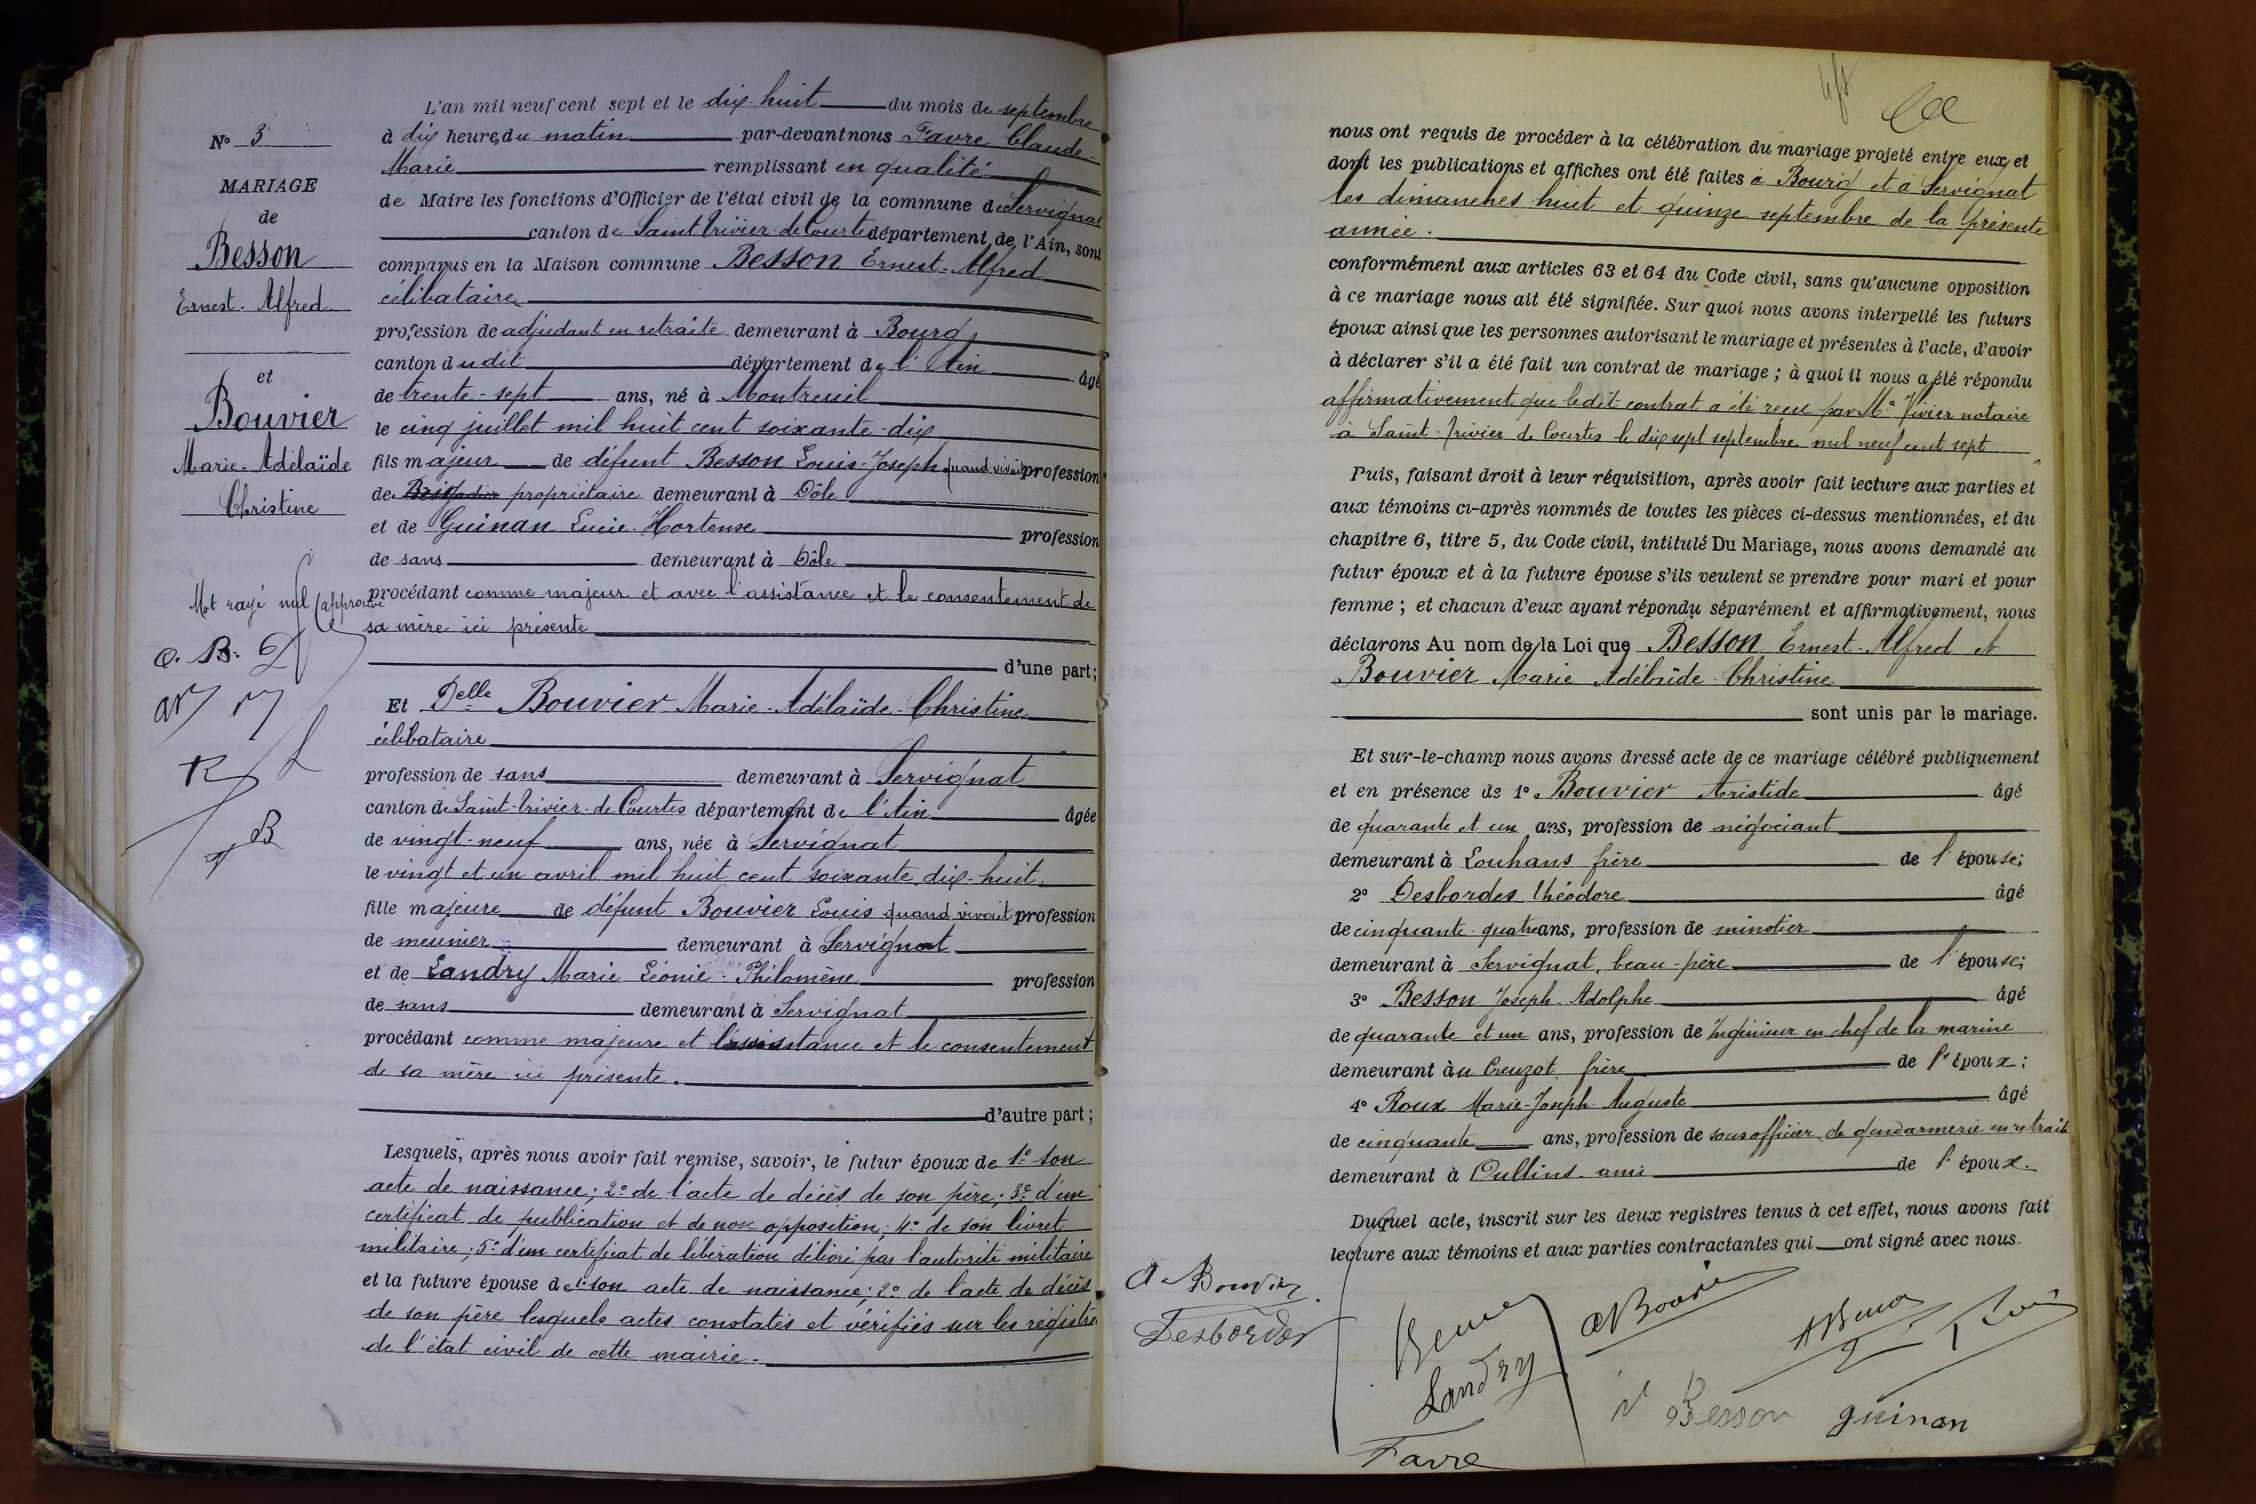 N° 3
MARIAGE
de
Besson
Ernest-Alfred
et
Bouvier
Marie-Adélaïde
Christine
Mot rayé nul approuvé
L'an mil neuf cent sept et le dix-huit du mois de septembre
à dix heures du matin par-devant nous Favre Claude-
Marie remplissant en qualité
de Maire les fonctions d'Officier de l'état civil de la commune de Servignat
canton de Saint Trivier-de Courtes département de l'Ain, sont
comparus en la Maison commune Besson Ernest-Alfred
célibataire
profession de adjudant en retraite demeurant à Bourg
canton dudit département de l'Ain âgé
de trente-sept ans, né à Montreuil
le cinq juillet mil huit cent soixante-dix
fils majeur de défunt Besson Louis-Joseph quand vivait profession
de propriétaire demeurant à Dôle
et de Guinan Lucie-Hortense profession
de sans demeurant à Dôle
procédant comme majeur et avec l'assistance et le consentement de
sa mère ici présente
d'une part;
Et Delle Bouvier Marie-Adélaïde-Christine
célibataire
profession de sans demeurant à Servignat
canton de Saint-Trivier-de Courtes département de l'Ain âgée
de vingt-neuf ans, née à Servignat
le vingt et un avril mil huit cent soixante-dix-huit
fille majeure de défunt Bouvier Louis quand vivait profession
de meunier demeurant à Servignat
et de Landry Marie Léonie-Philomène profession
de sans demeurant à Servignat
procédant comme majeure et l'assistance et le consentement
de sa mère ici présente.
d'autre part;
Lesquels, après nous avoir fait remise, savoir, le futur époux de 1° son
acte de naissance; 2° de l'acte de décès de son père; 3° d'un
certificat de publication et de non opposition; 4° de son livret
militaire; 5° d'un certificat de libération délivré par l'autorité militaire
et la future épouse de 1° son acte de naissance; 2° de l'acte de décès
de son père lesquels actes constatés et vérifiés sur les registres
de l'état civil de cette mairie.
nous ont requis de procéder à la célébration du mariage projeté entre eux et
dont les publications et affiches ont été faites à Bourg et à Servignat
les dimanches huit et quinze septembre de la présente
année.
conformément aux articles 63 et 64 du Code civil, sans qu'aucune opposition
à ce mariage nous ait été signifiée. Sur quoi nous avons interpellé les futurs
époux ainsi que les personnes autorisant le mariage et présentes à l'acte, d'avoir
à déclarer s'il a été fait un contrat de mariage; à quoi il nous a été répondu
affirmativement que ledit contrat a été reçu par Me Vivier notaire
à Saint-Trivier de Courtes le dix sept septembre mil neuf cent sept
Puis, faisant droit à leur réquisition, après avoir fait lecture aux parties et
aux témoins ci-après nommés de toutes les pièces ci-dessus mentionnées, et du
chapitre 6, titre 5, du Code civil, intitulé Du Mariage, nous avons demandé au
futur époux et à la future épouse s'ils veulent se prendre pour mari et pour
femme; et chacun d'eux ayant répondu séparément et affirmativement, nous
déclarons Au nom de la Loi que Besson Ernest-Alfred et
Bouvier Marie Adélaïde-Christine
sont unis par le mariage.
Et sur-le-champ nous avons dressé acte de ce mariage célébré publiquement
et en présence de 1° Bouvier Aristide âgé
de quarante et un ans, profession de négociant
demeurant à Louhans frère de l'épouse;
2° Desbordes Théodore âgé
de cinquante-quatre ans, profession de minotier
demeurant à Servignat, beau-père de l'épouse;
3° Besson Joseph-Adolphe âgé
de quarante et un ans, profession de Ingénieur en chef de la marine
demeurant au Creuzot frère de l'époux;
4° Roux Marie-Joseph-Auguste âgé
de cinquante ans, profession de sous officier de gendarmerie en retraite
demeurant à Oullins ami de l'époux.
Duquel acte, inscrit sur les deux registres tenus à cet effet, nous avons fait
lecture aux témoins et aux parties contractantes qui ont signé avec nous.
A. Bouvier
Desbordes
Landry
Favre
Besson
guinan